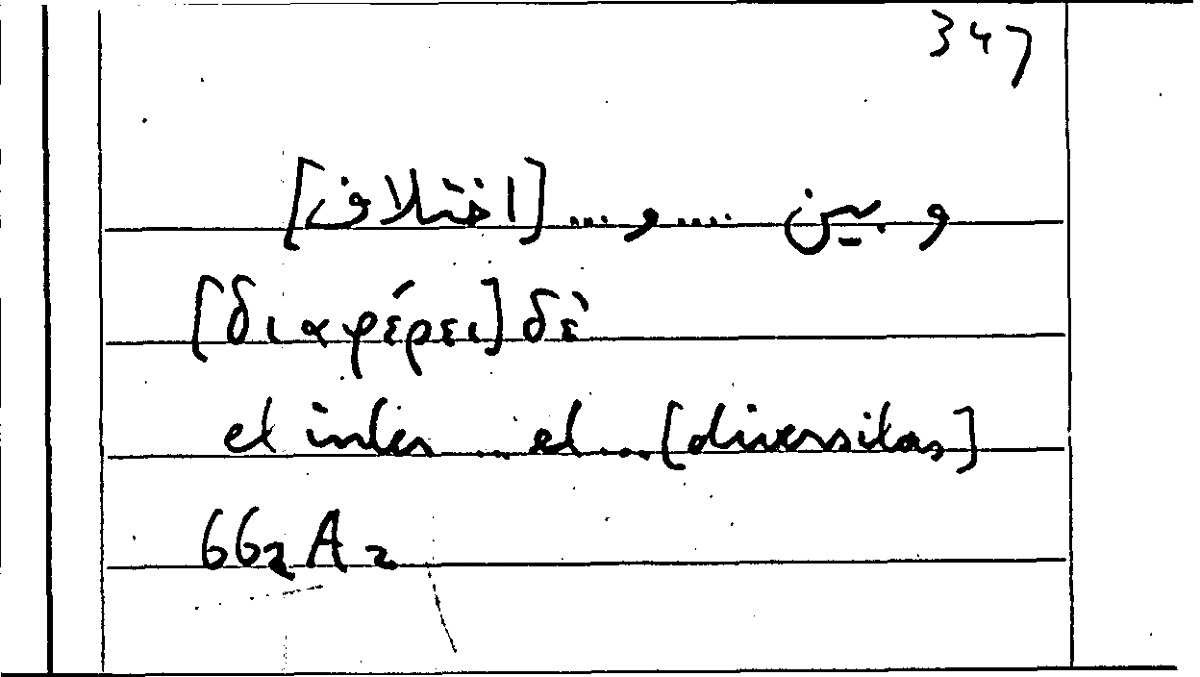 347
وبين .... و .... [اختلاف]
[διαφέρει] δὲ
et inter ... et ... [diversitas]
662 A 2